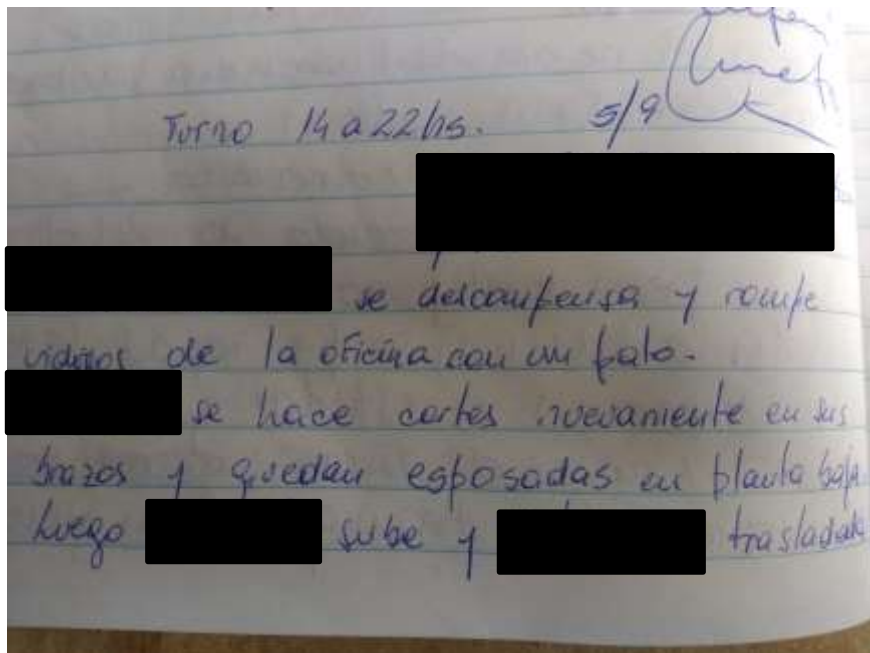 Turno 14 a 22hs. 5/9
se descompensa y rompe
vidrios de la oficina con un palo.
se hace cortes nuevamente en sus
brazos y quedan esposadas en planta baja
luego sube y trasladada